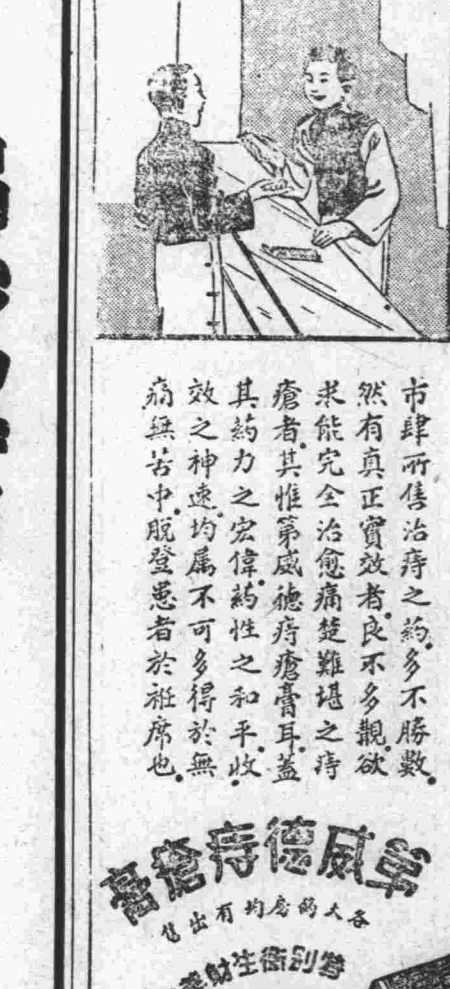 市肆所售治痔之药.多不勝數.
然有真正實效者.良不多觀.欲
求能完全治愈痛楚難堪之痔
瘡者.其惟第威德痔瘡膏耳.蓋
其药力之宏偉.药性之和平.收
效之神速.均属不可多得.於無
痛無苦中.脱登患者於袵席也.
第威德痔瘡膏
各大药房均有出售